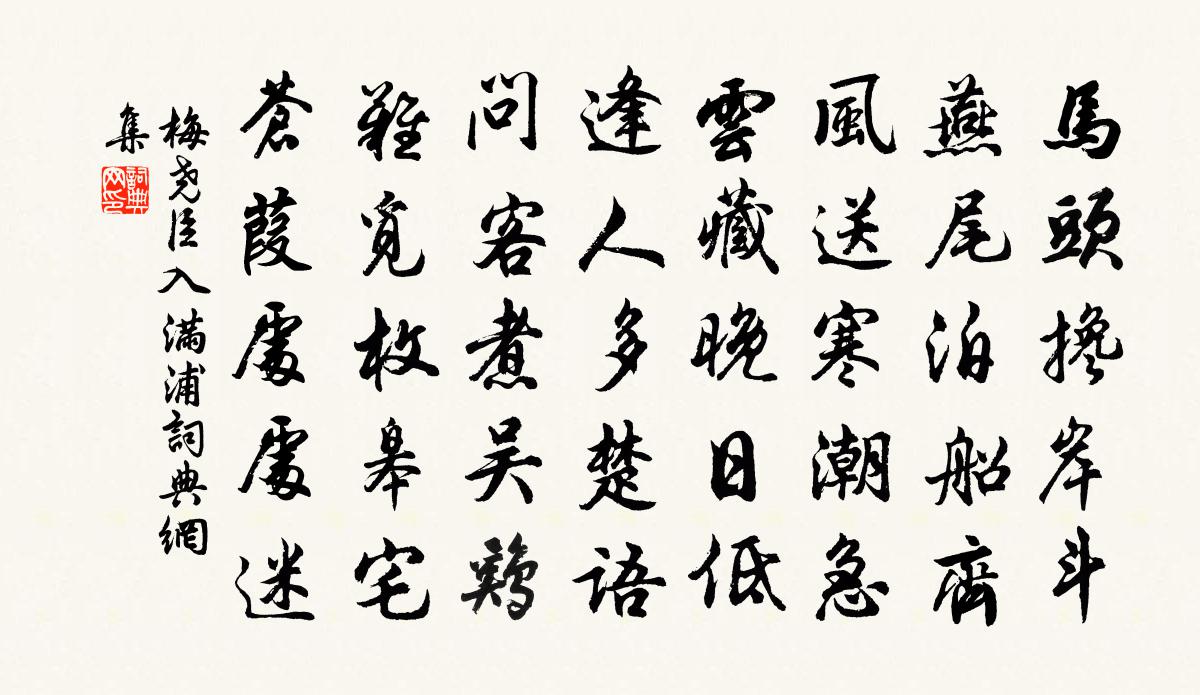 馬頭搀岸斗
燕尾泊船齊
風送寒潮急
雲藏晚日低
逢人多楚語
問客煮吴鷄
難覓枚皋宅
蒼葭處處迷
梅尧臣入滿浦詞典網
集
詞典
网印